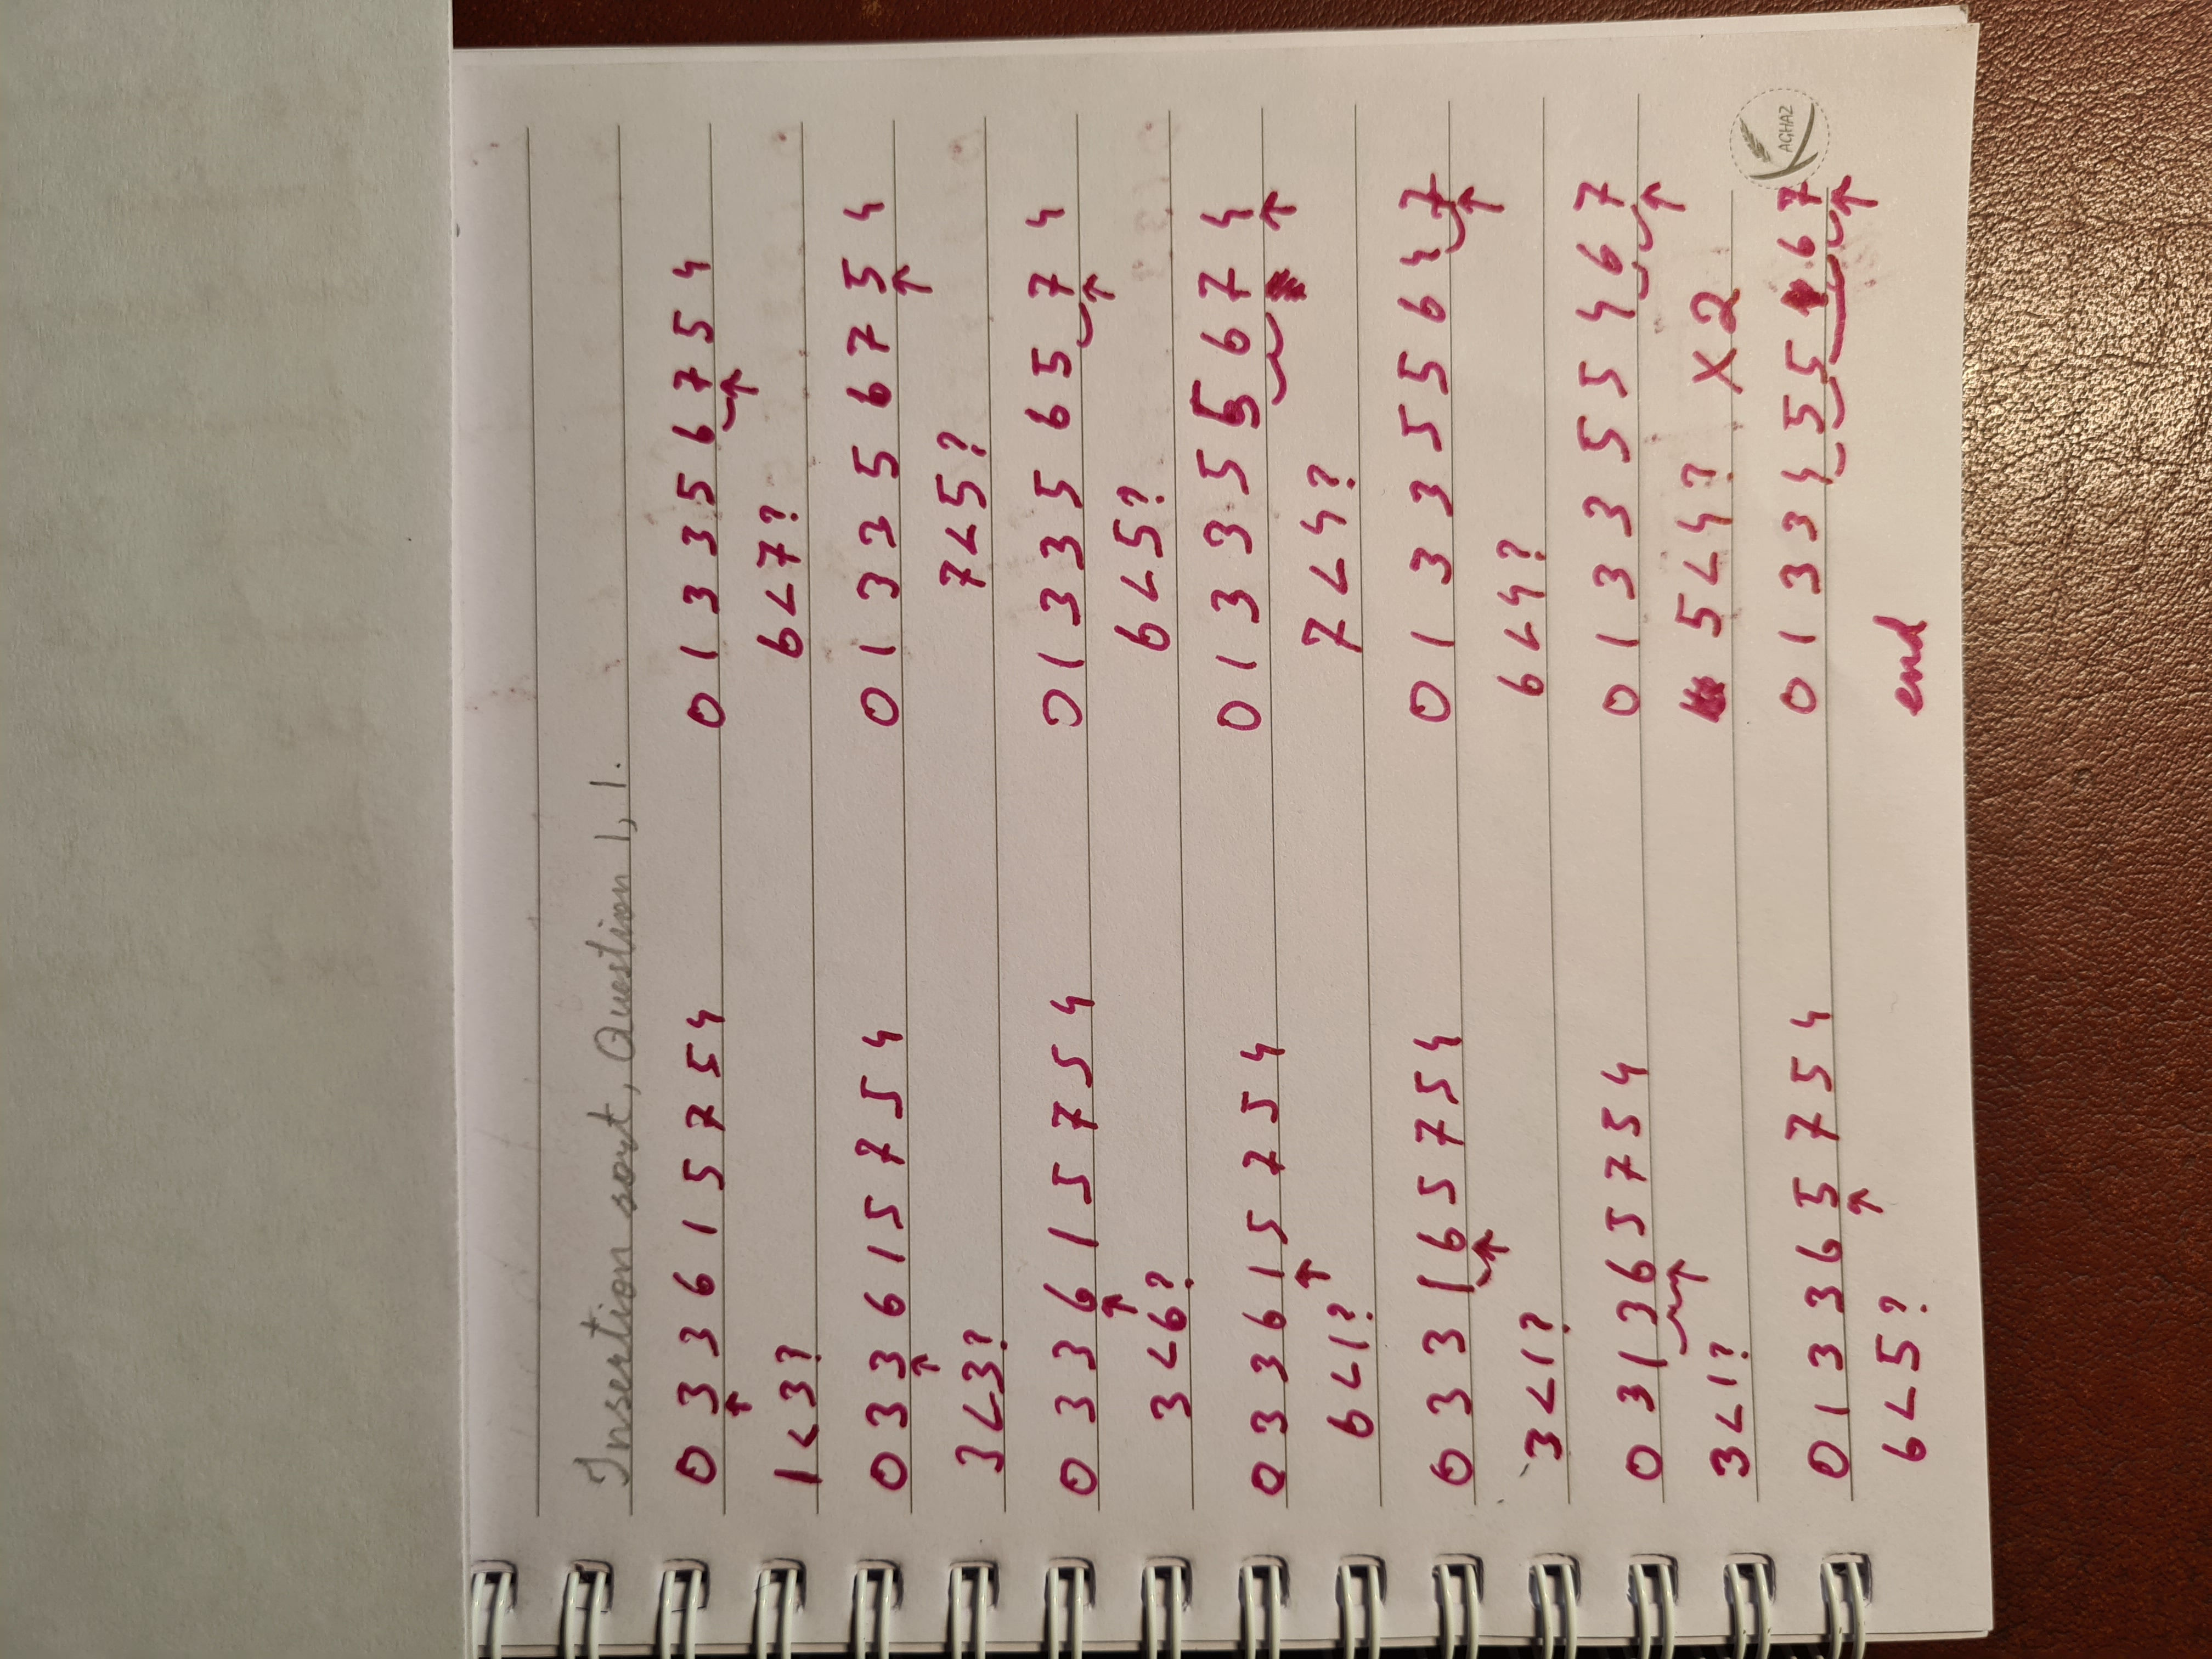 Insertion sort, Question 1, 1.
0 3 3 6 1 5 7 5 4
↑
1 < 3?
0 3 3 6 1 5 7 5 4
↑
3 < 3?
0 3 3 6 1 5 7 5 4
↑
3 < 6?
0 3 3 6 1 5 7 5 4
↑
6 < 1?
0 3 3 1 6 5 7 5 4
↑
3 < 1?
0 3 1 3 6 5 7 5 4
↑
3 < 1?
0 1 3 3 6 5 7 5 4
↑
6 < 5?
0 1 3 3 5 6 7 5 4
↑
6 < 7?
0 1 3 3 5 6 7 5 4
↑
7 < 5?
0 1 3 3 5 6 5 7 4
↑
6 < 5?
0 1 3 3 5 5 6 7 4
↑
7 < 4?
0 1 3 3 5 5 6 4 7
↑
6 < 4?
0 1 3 3 5 5 4 6 7
↑
5 < 4? × 2
0 1 3 3 4 5 5 6 7
↑
end
AGHAZ